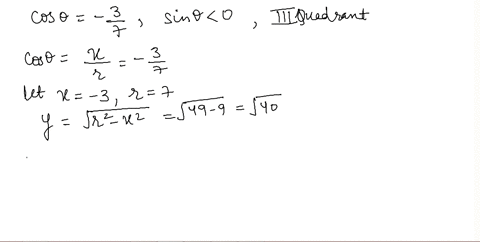 cosθ = -3/7 , sinθ < 0 , III Quadrant
cosθ = x/r = -3/7
let x = -3, r = 7
y = √(r²-x²) = √(49-9) = √40